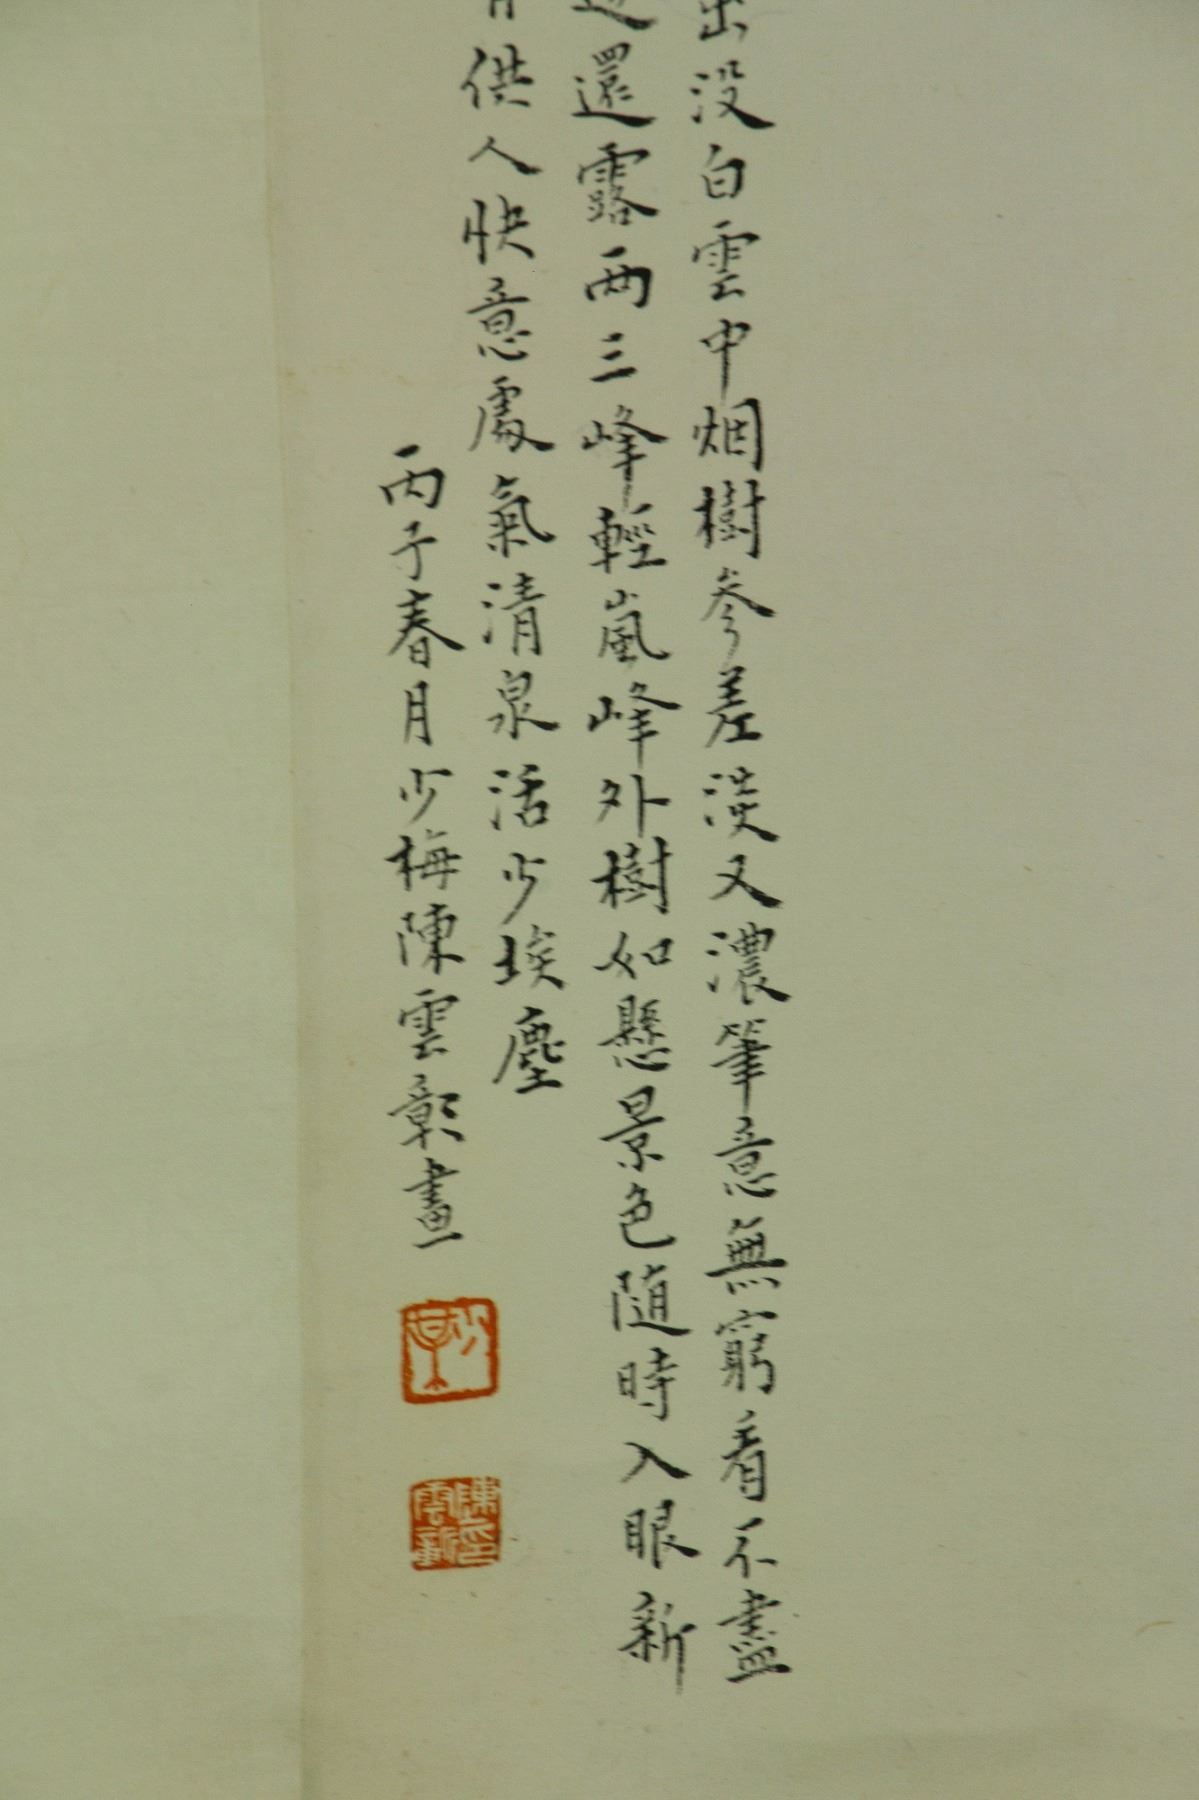 出没白雲中烟樹參差淡又濃筆意無窮看不盡
還露兩三峰輕嵐峰外樹如懸景色随時入眼新
供人快意處氣清泉活少埃塵
丙子春月少梅陳雲彰畫
少某
陳雲彰印